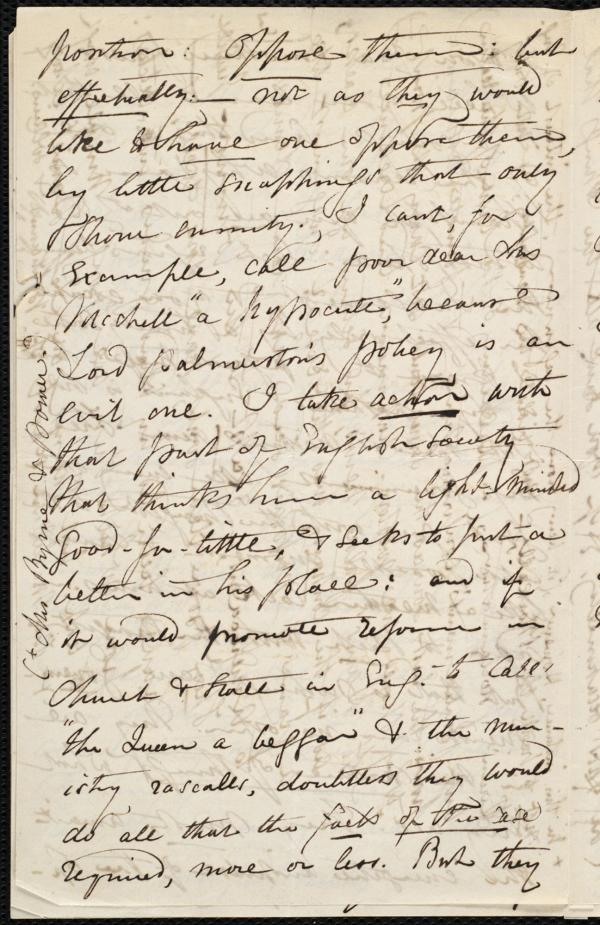 position: Oppose them: but
effectually:— not as they would
like to have one oppose them,
by little snappings that only
show enmity. I can't, for
Example, call poor dear Mrs
Mitchell "a hypocrite", because
Lord Palmerston's policy is an
evil one. I take action with
that part of English Society
that thinks him a light-minded
Good-for-little, & seeks to put a
better in his place: and if
it would promote reform in
Church & State in Eng. to call
"the Queen a beggar" & the min-
istry rascalls, doubtless they would
do all that the facts of the case
required, more or less. But they
(+ Mrs Byrne &